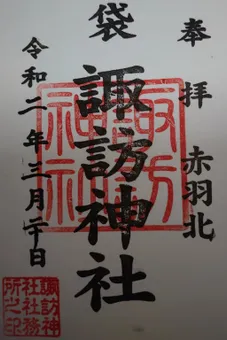 奉拝 赤羽北
袋 諏訪神社
令和二年三月二十日
諏訪神社
諏訪神
社社務
所之印